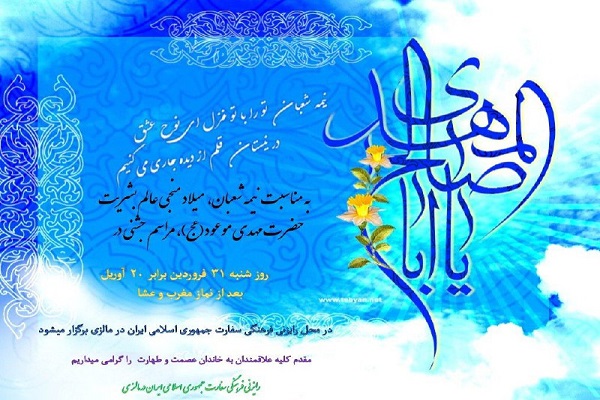 نیمه شعبان تو را با تو غزل ای نوح عشق
در نیستان قلم از دیده جاری می کنیم
به مناسبت نیمه شعبان، میلاد منجی عالم بشریت
حضرت مهدی موعود (عج)، مراسم جشنی در
روز شنبه ۳۱ فروردین برابر ۲۰ آوریل
بعد از نماز مغرب و عشا
در محل رایزنی فرهنگی سفارت جمهوری اسلامی ایران در مالزی برگزار میشود
مقدم کلیه علاقمندان به خاندان عصمت و طهارت را گرامی میداریم
رایزنی فرهنگی سفارت جمهوری اسلامی ایران در مالزی
یا اباصالح المهدی
www.tebyan.net